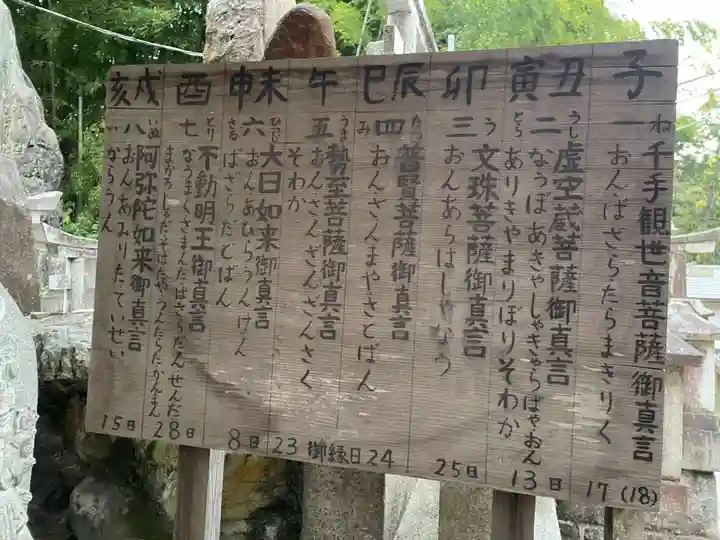 子
ね
一 千手観世音菩薩御真言
おんばざらたらまきりく
17(18)
丑寅
うし
とら
二 虚空蔵菩薩御真言
なうぼあきゃしゃきゃらばやおん
ありきやまりぼりそわか
13日
卯
う
三 文珠菩薩御真言
おんあらはしゃなう
25日
辰巳
たつ
み
四 普賢菩薩御真言
おんさんまやさとばん
24
午
うま
五 勢至菩薩御真言
おんさんざんざんさく
そわか
御縁日
23
未申
ひつじ
さる
六 大日如来御真言
おんあびらうんけん
ばざらだどばん
8日
酉
とり
七 不動明王御真言
なうまくさまんだばさらだんせんだ
まかろしゃだそはたやうんたらたかんまん
28日
戌亥
いぬ
い
八 阿弥陀如来御真言
おんあみりたていせい
からうん
15日